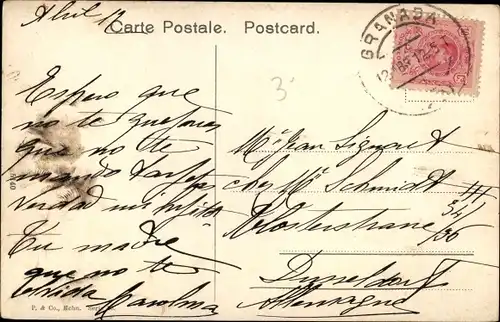 Abril 12
Carte Postale. Postcard.
GRANADA
3
Espero que
no te quejaras
que no te
mando
verdad mi hijito
Tu madre
que no te
olvida Carolina
Mr Jean Signoret
chez Mr Schmidt III
Klosterstrasse 34/36
Dusseldorf
Allemagne
P. & Co., Mchn.